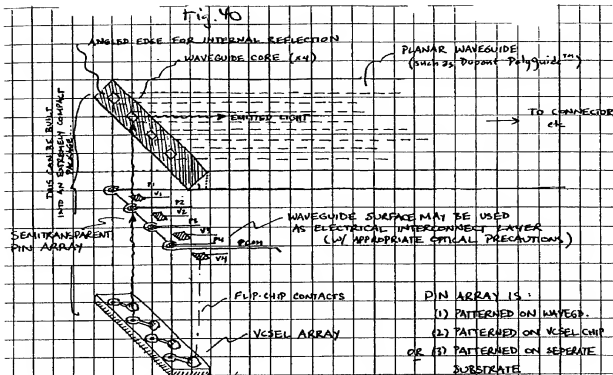 Fig. 40
ANGLED EDGE FOR INTERNAL REFLECTION
WAVEGUIDE CORE (x4)
PLANAR WAVEGUIDE
(such as Dupont PolyGuide™)
EMITTED LIGHT
TO CONNECTOR
etc
THIS CAN BE BUILT
INTO AN EXTREMELY COMPACT
PACKAGE
P1
V1
P2
V2
P3
V3
P4
V4
PCOM
SEMITRANSPARENT
PIN ARRAY
WAVEGUIDE SURFACE MAY BE USED
AS ELECTRICAL INTERCONNECT LAYER
(W/ APPROPRIATE OPTICAL PRECAUTIONS)
FLIP-CHIP CONTACTS
VCSEL ARRAY
PIN ARRAY IS:
(1) PATTERNED ON WAVEGD.
(2) PATTERNED ON VCSEL CHIP
OR (3) PATTERNED ON SEPERATE
SUBSTRATE